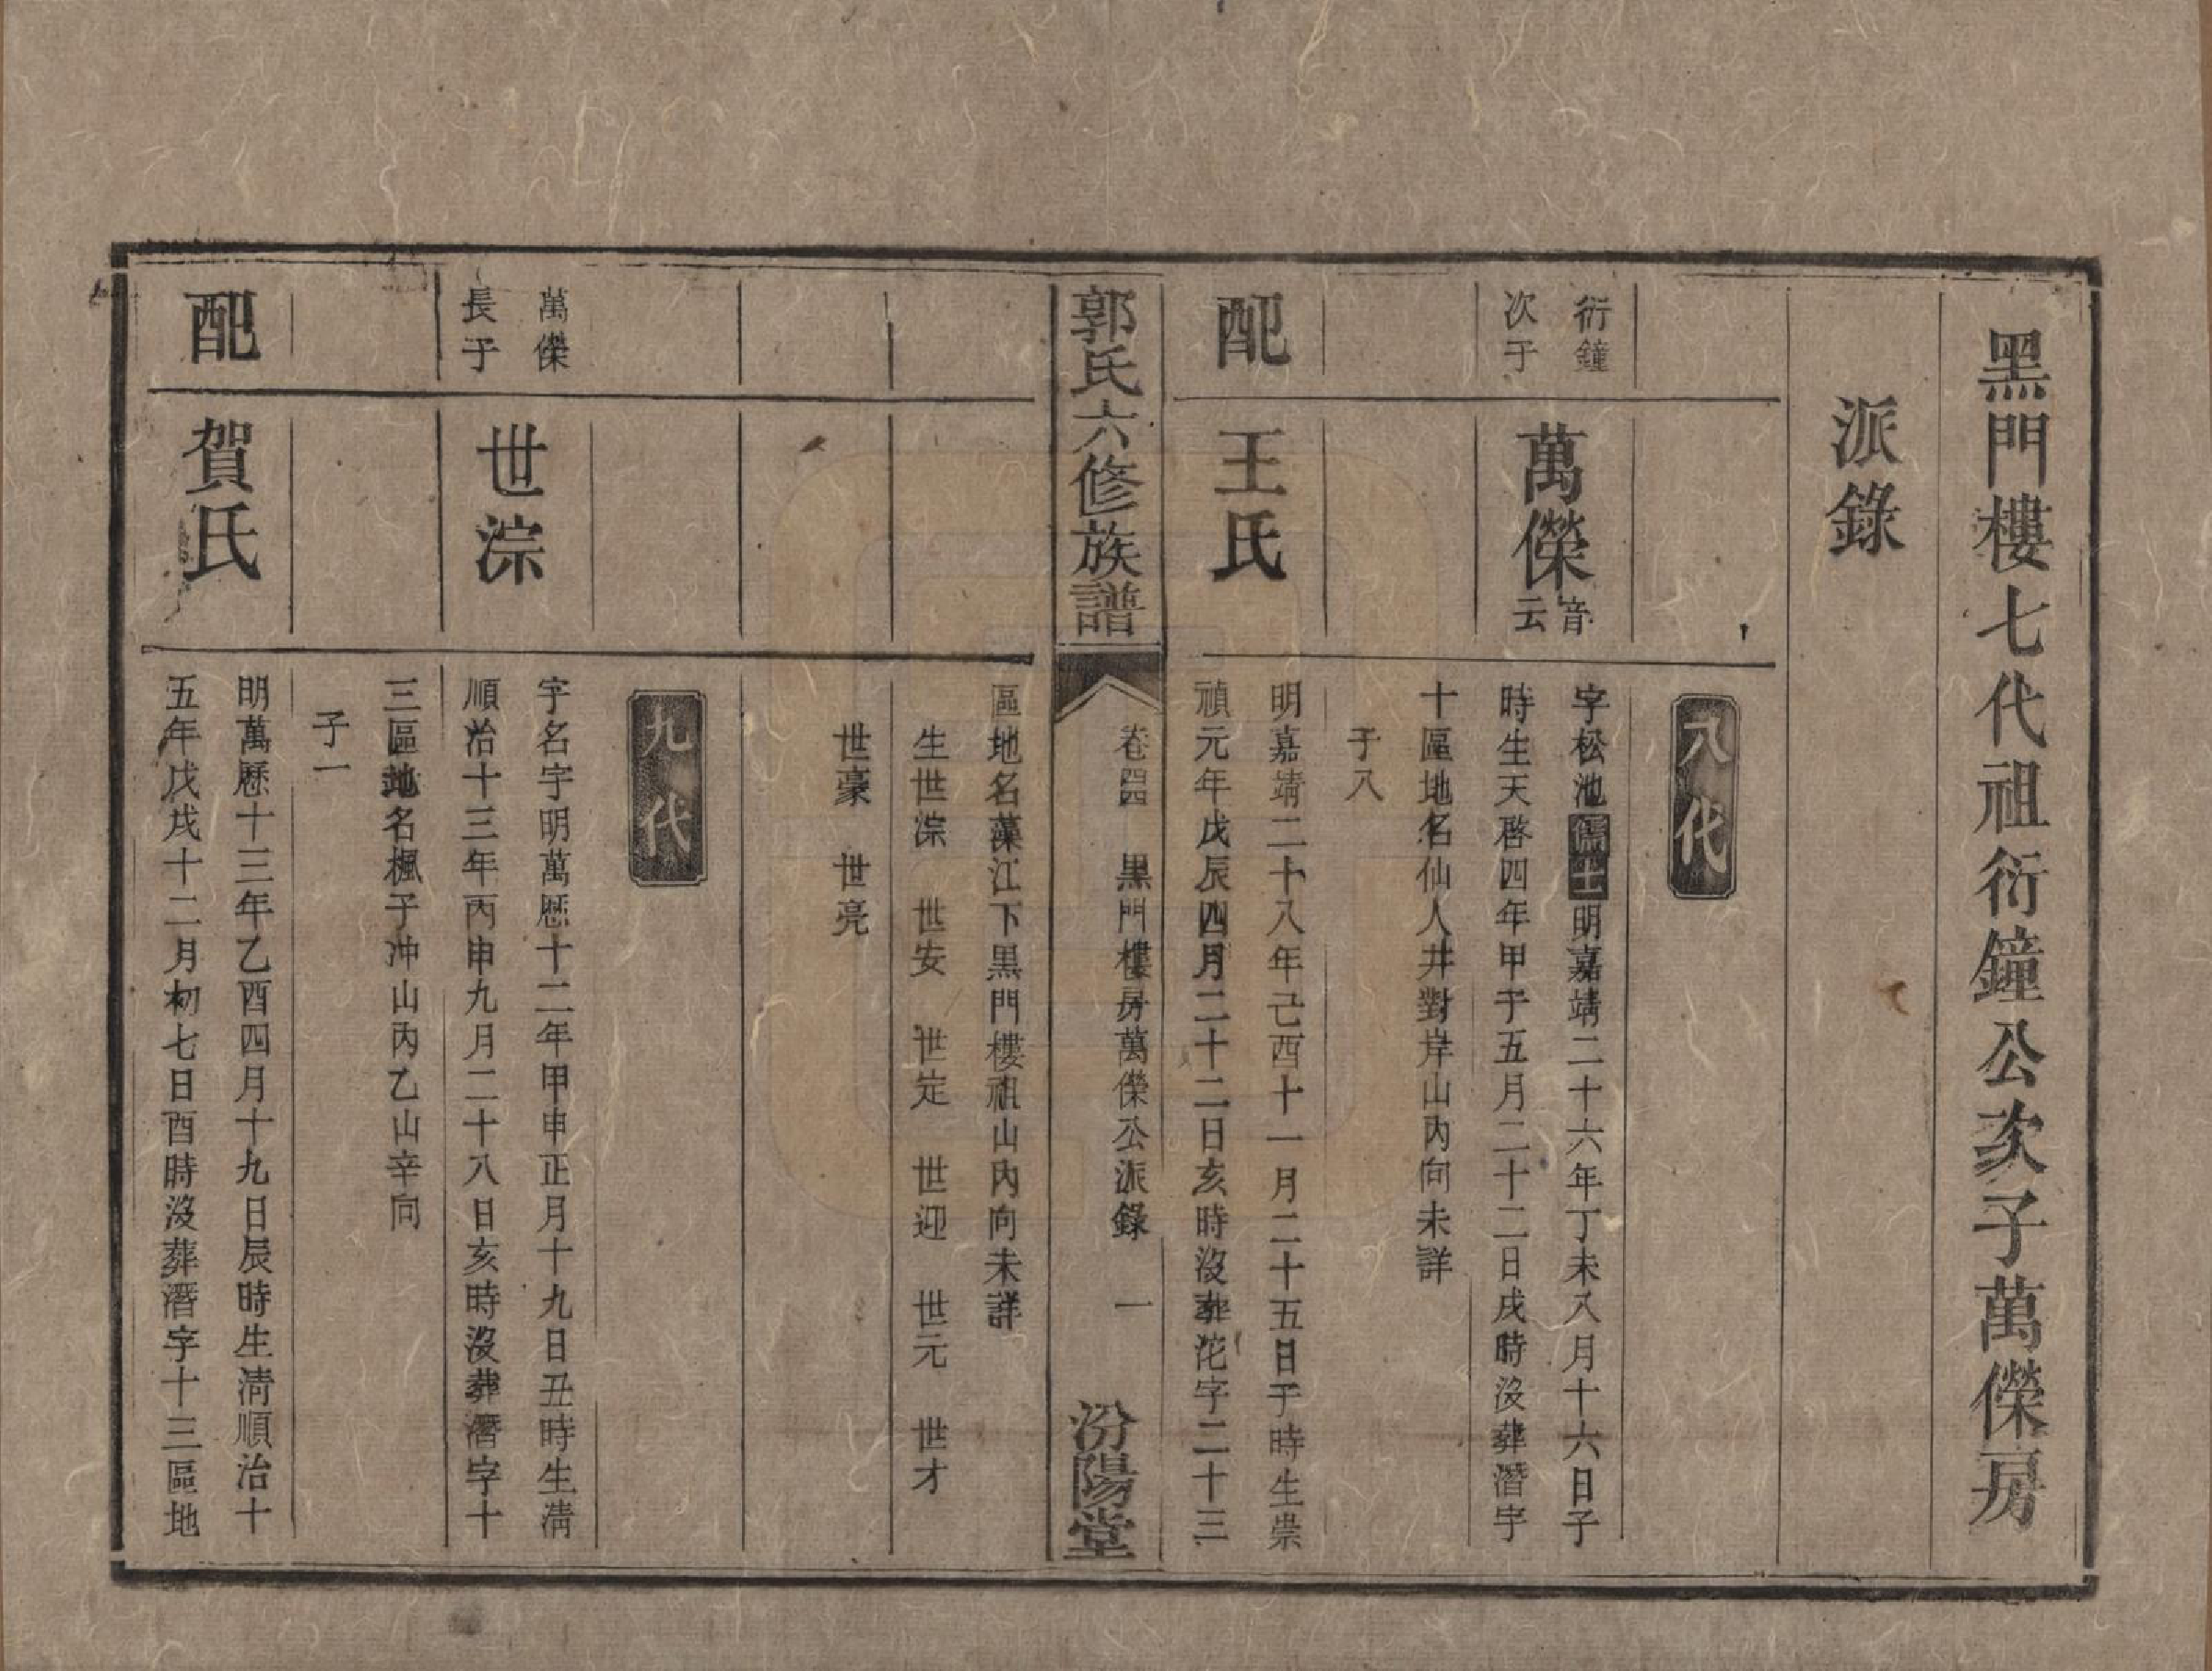 黑門樓七代祖衍鐘公次子萬傑房
派錄
八代
衍鐘
次子
萬傑音
云
字松池儒士明嘉靖二十六年丁未八月十六日子
時生天啓四年甲子五月二十二日戌時沒葬潛字
十區地名仙人井對岸山內向未詳
子八
配
王氏
明嘉靖二十八年己酉十一月二十五日子時生崇
禎元年戊辰四月二十二日亥時沒葬沱字二十三
郭氏六修族譜
卷四 黑門樓房萬傑公派錄 一
汾陽堂
區地名藻江下黑門樓祖山內向未詳
生世淙 世安 世定 世迎 世元 世才
世豪 世亮
九代
萬傑
長子
世淙
字名字明萬歷十二年甲申正月十九日丑時生清
順治十三年丙申九月二十八日亥時沒葬潛字十
三區地名楓子冲山內乙山辛向
子一
配
賀氏
明萬歷十三年乙酉四月十九日辰時生清順治十
五年戊戌十二月初七日酉時沒葬潛字十三區地